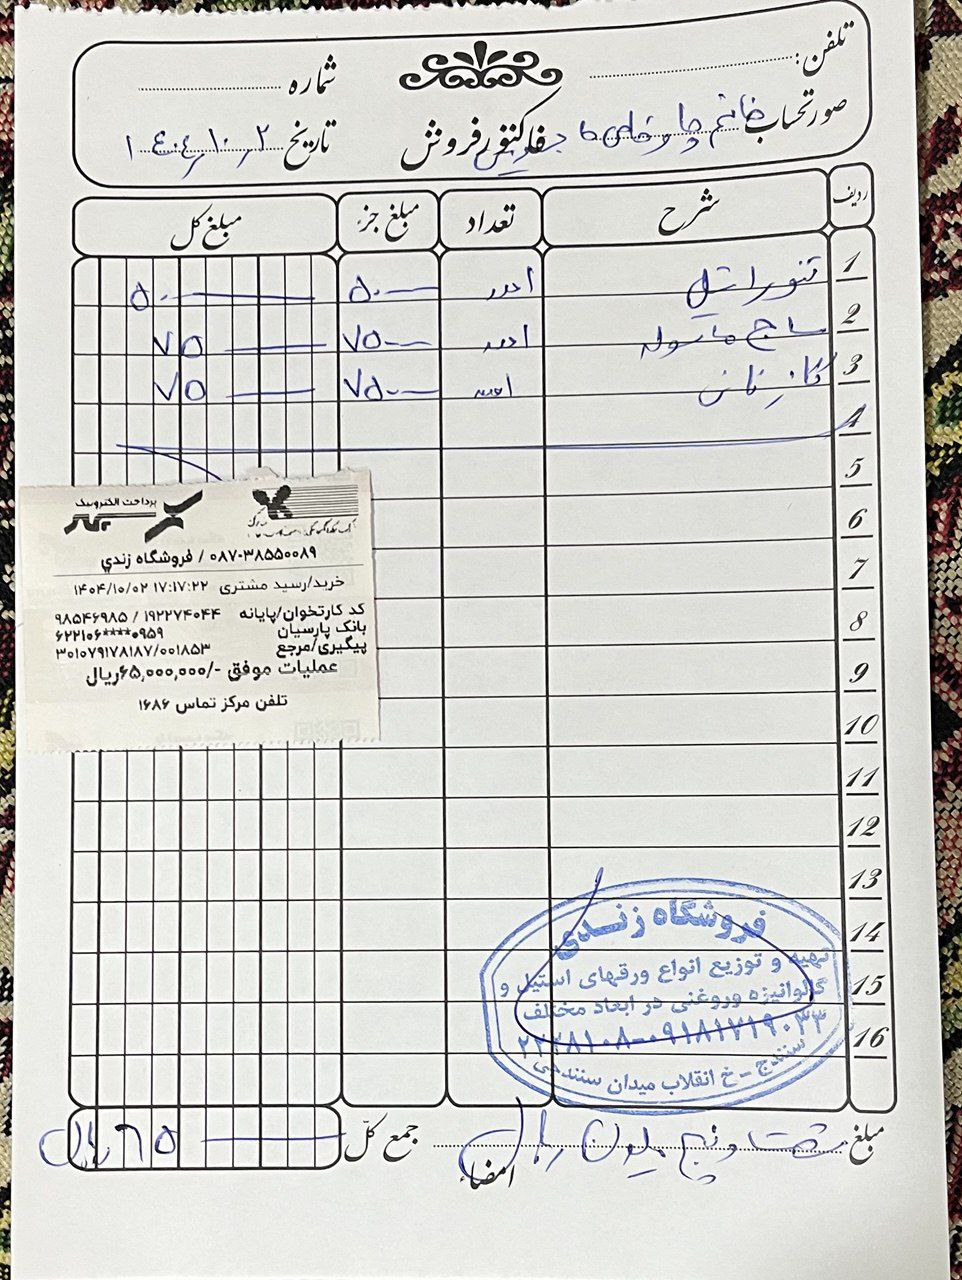 تلفن:
شماره
صورتحساب خانم
فاکتور فروش
تاریخ ۱۴۰۴/۱۰/۲
ردیف شرح تعداد مبلغ جزء مبلغ کل
1 تنور استیل ۱ عدد ۵۰۰— ۵۰—
2 ساج ۱ عدد ۷۵۰— ۷۵—
3 ۱ عدد ۷۵۰۰— ۷۵—
4
5
6
7
8
9
10
11
12
13
14
15
16
پرداخت الکترونیک
۰۸۷-۳۸۵۵۰۰۸۹ / فروشگاه زندي
خرید/رسید مشتری ۱۴۰۴/۱۰/۰۲ ۱۷:۱۷:۲۲
کد کارتخوان/پایانه ۱۹۲۲۷۴۰۴۴ / ۹۸۵۴۶۹۸۵
بانک پارسیان ۶۲۲۱۰۶****۰۹۵۹
پیگیری/مرجع ۳۰۱۰۷۹۱۷۸۱۸۷/۰۰۱۸۵۳
عملیات موفق -/۶۵,۰۰۰,۰۰۰ریال
تلفن مرکز تماس ۱۶۸۶
فروشگاه زندی
تهیه و توزیع انواع ورقهای استیل و
گالوانیزه وروغنی در ابعاد مختلف
۰۹۱۸۱۷۱۹۰۳۳
سنندج - خ انقلاب میدان سنندجی
مبلغ شصت و پنج میلیون ریال
جمع کل ۶۵— ریال
امضاء